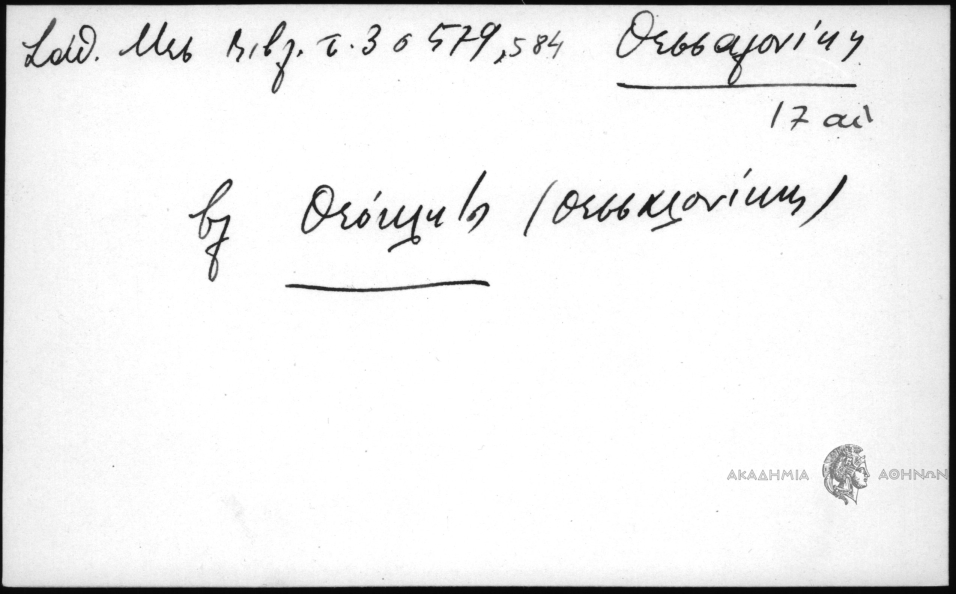 Σάθ. Μεσ Βιβλ. τ. 3 σ 579, 584 Θεσσαλονίκη
17 αἰ
βλ Θεόκλητος (Θεσσαλονίκης)
ΑΚΑΔΗΜΙΑ ΑΘΗΝΩΝ